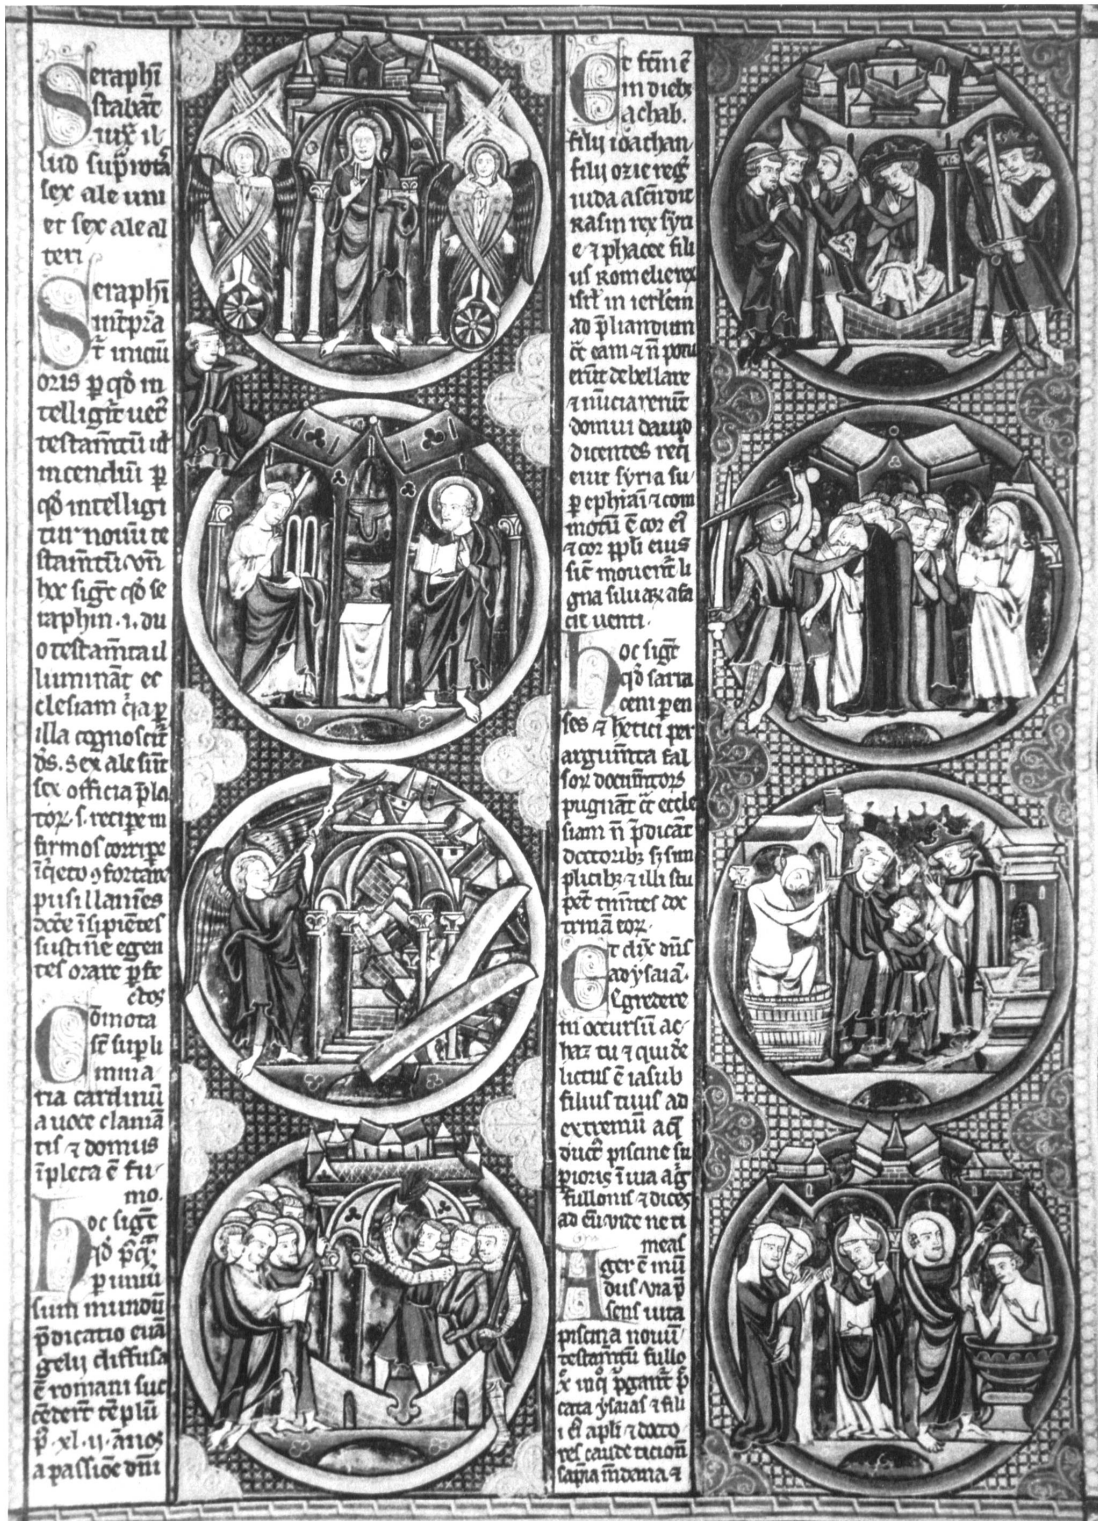 Seraphī
stabāt
iuxͭ il
lud sup̱ rotā
sex ale uni
et sex ale al
teri
Seraphī
int̄prā
t̄ inciū
oris p̱ qd̄ in
telligit̄ uet̄
testam̄tū ul͛
incendiū p̱
qd̄ intelligi
tur nouū te
stam̄tū. vn̄
hoc sigt̄ qd̄ se
raphin .i. du
o testam̄ta il
lumināt ec
clesiam q̄ia p̱
illa cognoscit̄
d̄s. Sex ale sūt
sex officia p̄la
toꝝ .s. recip̱e in
firmos corrip̱e
īq̄eto ꝯfortare
pusillanīes
doc̄e īsipiētes
sustin̄e egen
tes orare p̱ fc̄
ctos
Cōmota
st̄ sup̱li
mina
ria cardinū
a uoce clamā
tis ⁊ domus
īpleta ē fu
mo.
hoc sigt̄
qd̄ p̄q̄;
p̱ uniū
sum mundū
p̄dicatio euā
gelii diffusa
ē romani suc
cēdert̄ tēplū
p̄ .xl. ii. ānos
a passiōe dn̄i
Et fc̄m ē
in dieb;
achab.
filij ioachan
filij ozie reḡ
iuda ascendit
Rasin rex syri
e ⁊ phacee fili
us Romelie rex
isrl̄ in ierlēm
ad p̄liandum
cͭ eam ⁊ n̄ potu
erūt debellare
⁊ nūciauerūt
domui dauid
dicentes req̄
euit syria su
p̱ ephiam ⁊ com
motū ē cor ei͛
⁊ cor ppl̄i eius
sic̄ mouent̄ li
gna siluaꝝ a fa
cie uenti.
hoc sigt̄
qd̄ sarra
ceni p̱en
ses ⁊ hetici per
argum̄ta fal
soꝝ docum̄toꝝ
pugnāt cͭ eccle
siam n̄ p̄dicāt
doctorib; sꝫ sim
plicib; ⁊ illi stu
pēt tim̄tes doc
trinā eoꝝ.
Et dix̄ dn̄s
ad ysaiā.
Egredere
in occursū ac
haz tu ⁊ qui de
lictus ē iasub
filius tuus ad
extremū aq̄
duct̄ piscine su
p̱ioris ī uia aḡ
fullonis ⁊ dices
ad eū vide ne ti
meas
Ager ē mū
dus
sens uita
piscina nouū
testam̄tū fullo
p̄
cata ysaias ⁊ fili
i ei͛ apl̄i ⁊ docto
res
sapīa mūdana. ⁊